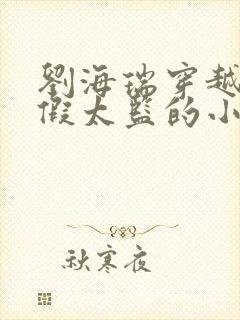 劉海瑞穿越
假太監的小
秋寒夜